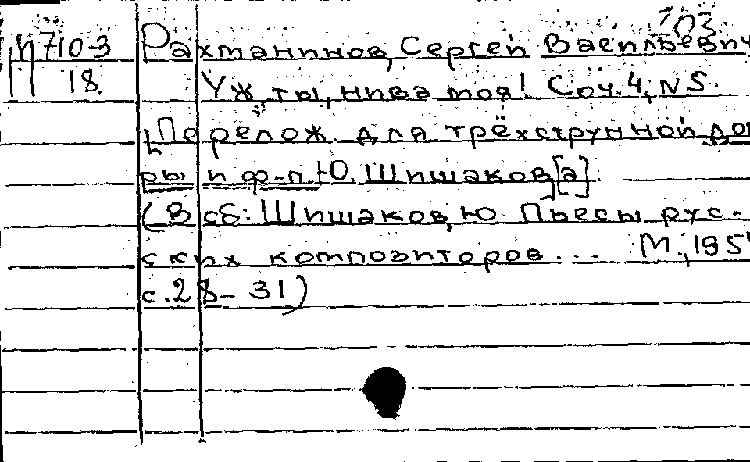 103
П710-3 Рахманинов, Сергей Васильевич
18. Уж ты, нива моя! Соч. 4, N 5.
[Перелож. для трёхструнной дом
ры и ф-п. Ю. Шишаков[а].
(В сб: Шишаков, Ю. Пьесы рус-
ских композиторов... М., 195
с. 28-31)